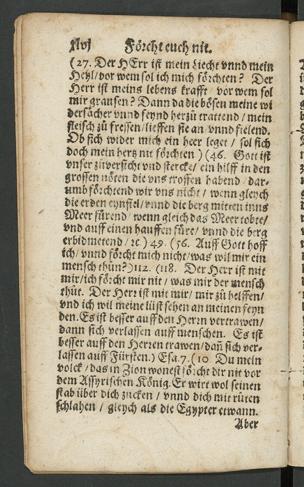 xlvj Förcht euch nit.
(27. Der HErr ist mein Liecht vnnd mein
Heyl/vor wem sol ich mich förchten? Der
Herr ist meins lebens krafft vor wem sol
mir grausen? Dann da die bösen meine wi
dersächer vnnd feynd herzü trattend/mein
fleisch zu fressen/lieffen sie an vnnd fielend.
Ob sich wider mich ein heer leger/sol sich
doch mein hertz nit förchten) (46. Gott ist
vnser züuersicht vnd stercke/ein hilff in den
grossen nöten die vns troffen habend/dar-
umb förchtend wir vns nicht/wenn gleych
die erden eynfiel/vnnd die berg mitten inns
Meer fürend/wenn gleich das Meer tobte/
vnd auff einen hauffen füre/vnnd die berg
erbidmetend/ꝛc) 49. (56. Auff Gott hoff
ich/vnnd förcht mich nicht/was wil mir ein
mensch thün?)112. (118. Der Herr ist mit
mir/ich förcht mir nit/was mir der mensch
thüt. Der Herr ist mit mir/mir zü helffen/
vnd ich wil meine lüst sehen an meinen feyn
den. Es ist besser auff den Herrn vertrawen/
dann sich verlassen auff menschen. Es ist
besser auff den Herren trawen/dañ sich ver-
lassen auff Fürsten.) Esa.7.(10 Du mein
volck/das in Zion wonest förcht dir nit vor
dem Assyrischen König. Er wirt wol seinen
stab über dich zucken/vnnd dich mit rüten
schlahen/gleych als die Egypter etwann.
Aber